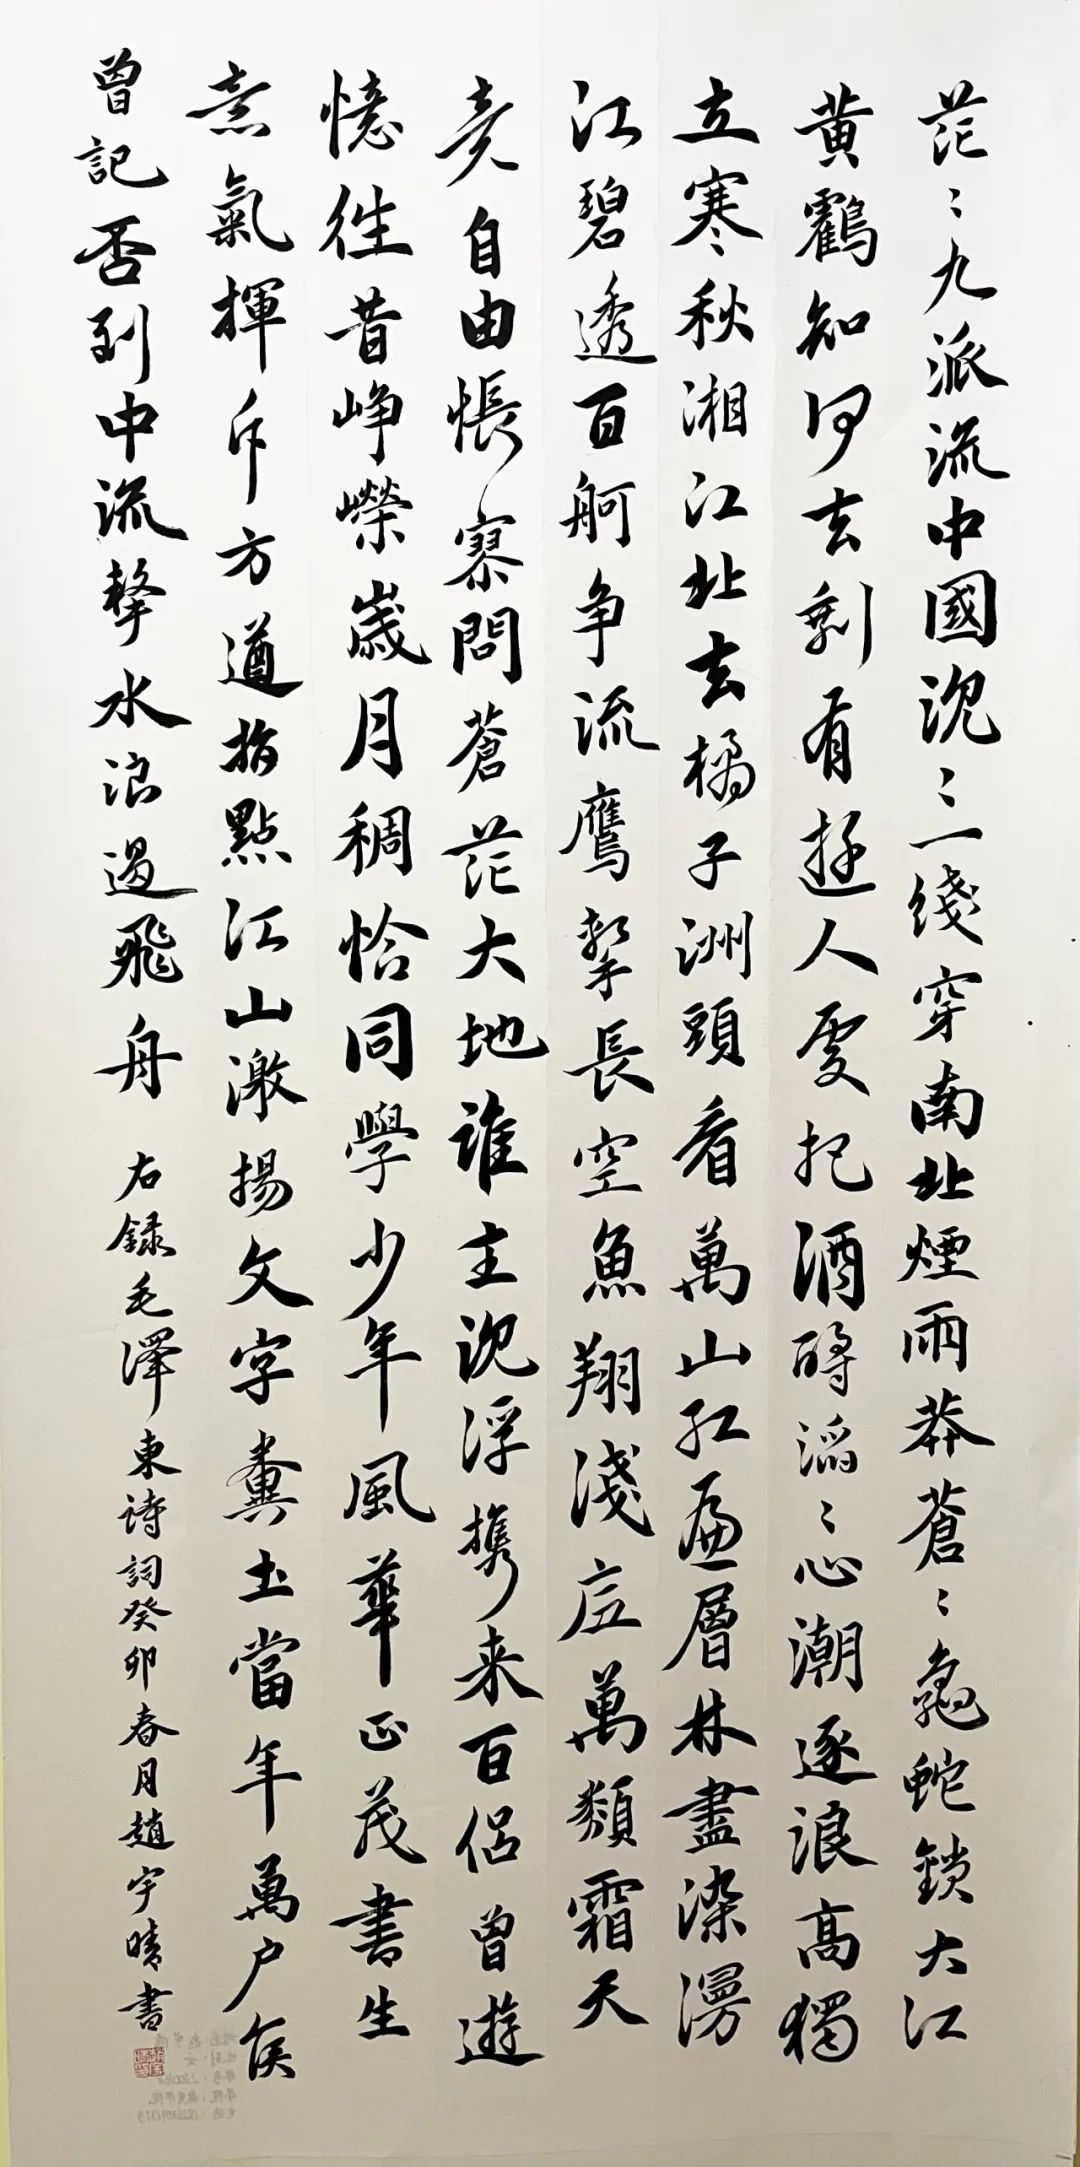 茫〻九派流中國沉〻一綫穿南北煙雨莽蒼〻龜蛇鎖大江
黄鶴知何去剩有遊人處把酒酹滔〻心潮逐浪高獨
立寒秋湘江北去橘子洲頭看萬山紅遍層林盡染漫
江碧透百舸争流鷹擊長空魚翔淺底萬類霜天
竞自由悵寥問蒼茫大地誰主沉浮携来百侣曾遊
憶往昔峥嶸歲月稠恰同學少年風華正茂書生
意氣揮斥方遒指點江山激揚文字糞土當年萬户侯
曾記否到中流擊水浪遏飛舟 右録毛澤東诗詞癸卯春月趙宇晴書